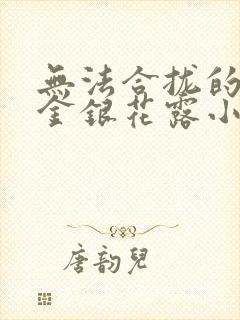 無法合拢的
金銀花露小
唐韵兒